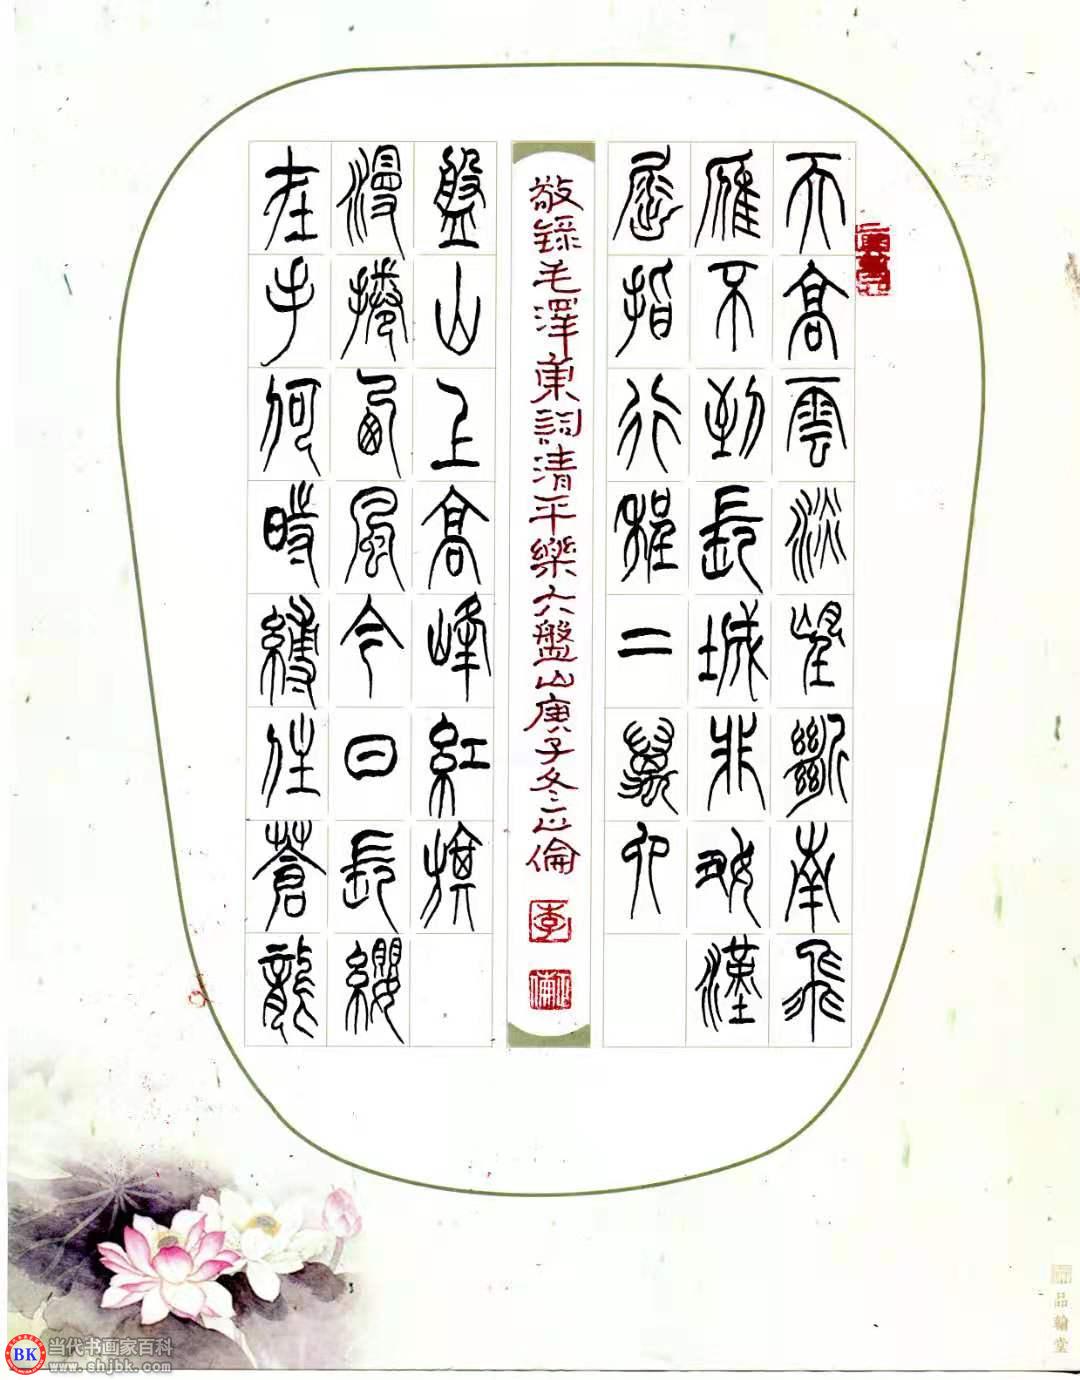 天高雲淡望斷南飛
雁不到長城非好漢
屈指行程二萬六
盤山上高峰紅旗
漫捲西風今日長纓
在手何時縛住蒼龍
敬錄毛澤東詞清平樂六盤山庚子冬正倫
李
正倫
品翰堂
BK
当代书画家百科
www.shjbk.com